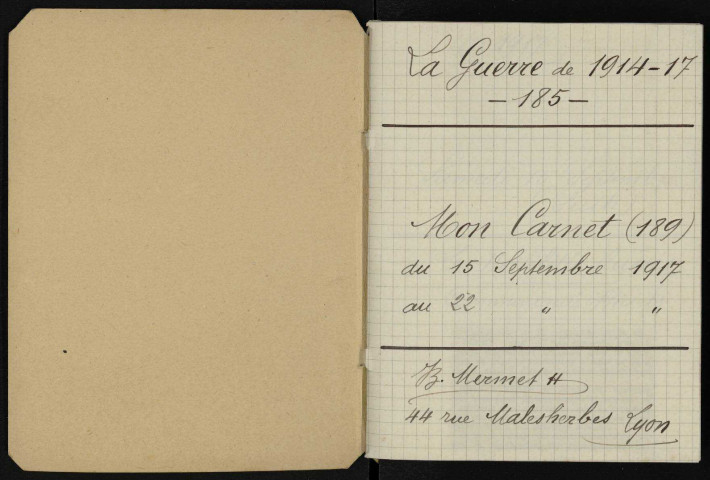 La Guerre de 1914-17
- 185 -
Mon Carnet (189)
du 15 Septembre 1917
au 22 " "
B. Mermet
44 rue Malesherbes Lyon